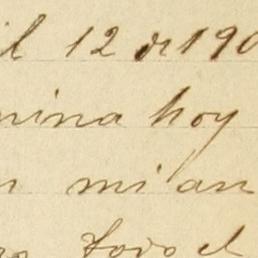 il 12 de 190
nina hoy
n mi an
Todo el